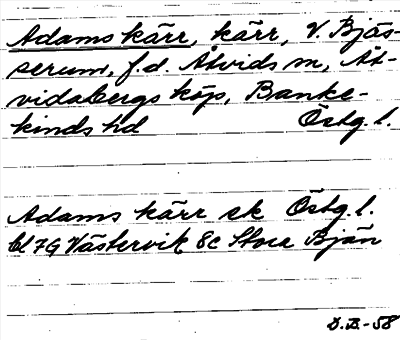 Adams kärr, kärr, V. Bjäs-
serum, f.d. Åtvids sn, Åt-
vidabergs köp, Banke-
kinds hd Östg. l.
Adams kärr ek Östg. l.
bl 7G Västervik 8c Stora Bjän
D.B.-58